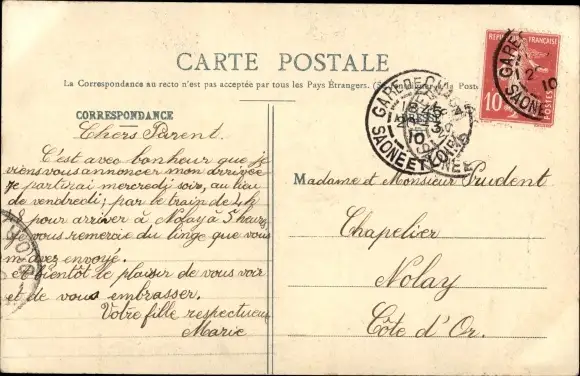 CARTE POSTALE
La Correspondance au recto n'est pas acceptée par tous les Pays Étrangers.
CORRESPONDANCE
Chers Parent.
C'est avec bonheur que je
viens vous annoncer mon arrivée
je partirai mercredi soir, au lieu
de vendredi; par le train de 4h
pour arriver à Nolay à 5 heures
je vous remercie du linge que vous
m'avez envoyé.
et bientôt le plaisir de vous voir
et de vous embrasser.
Votre fille respectueu
Marie
Madame et Monsieur Prudent
Chapelier
Nolay
Côte d'Or.
GARE DE
SAONE ET LOIRE
10
GARE
12
10
SAONE
FRANÇAISE
10
POSTES